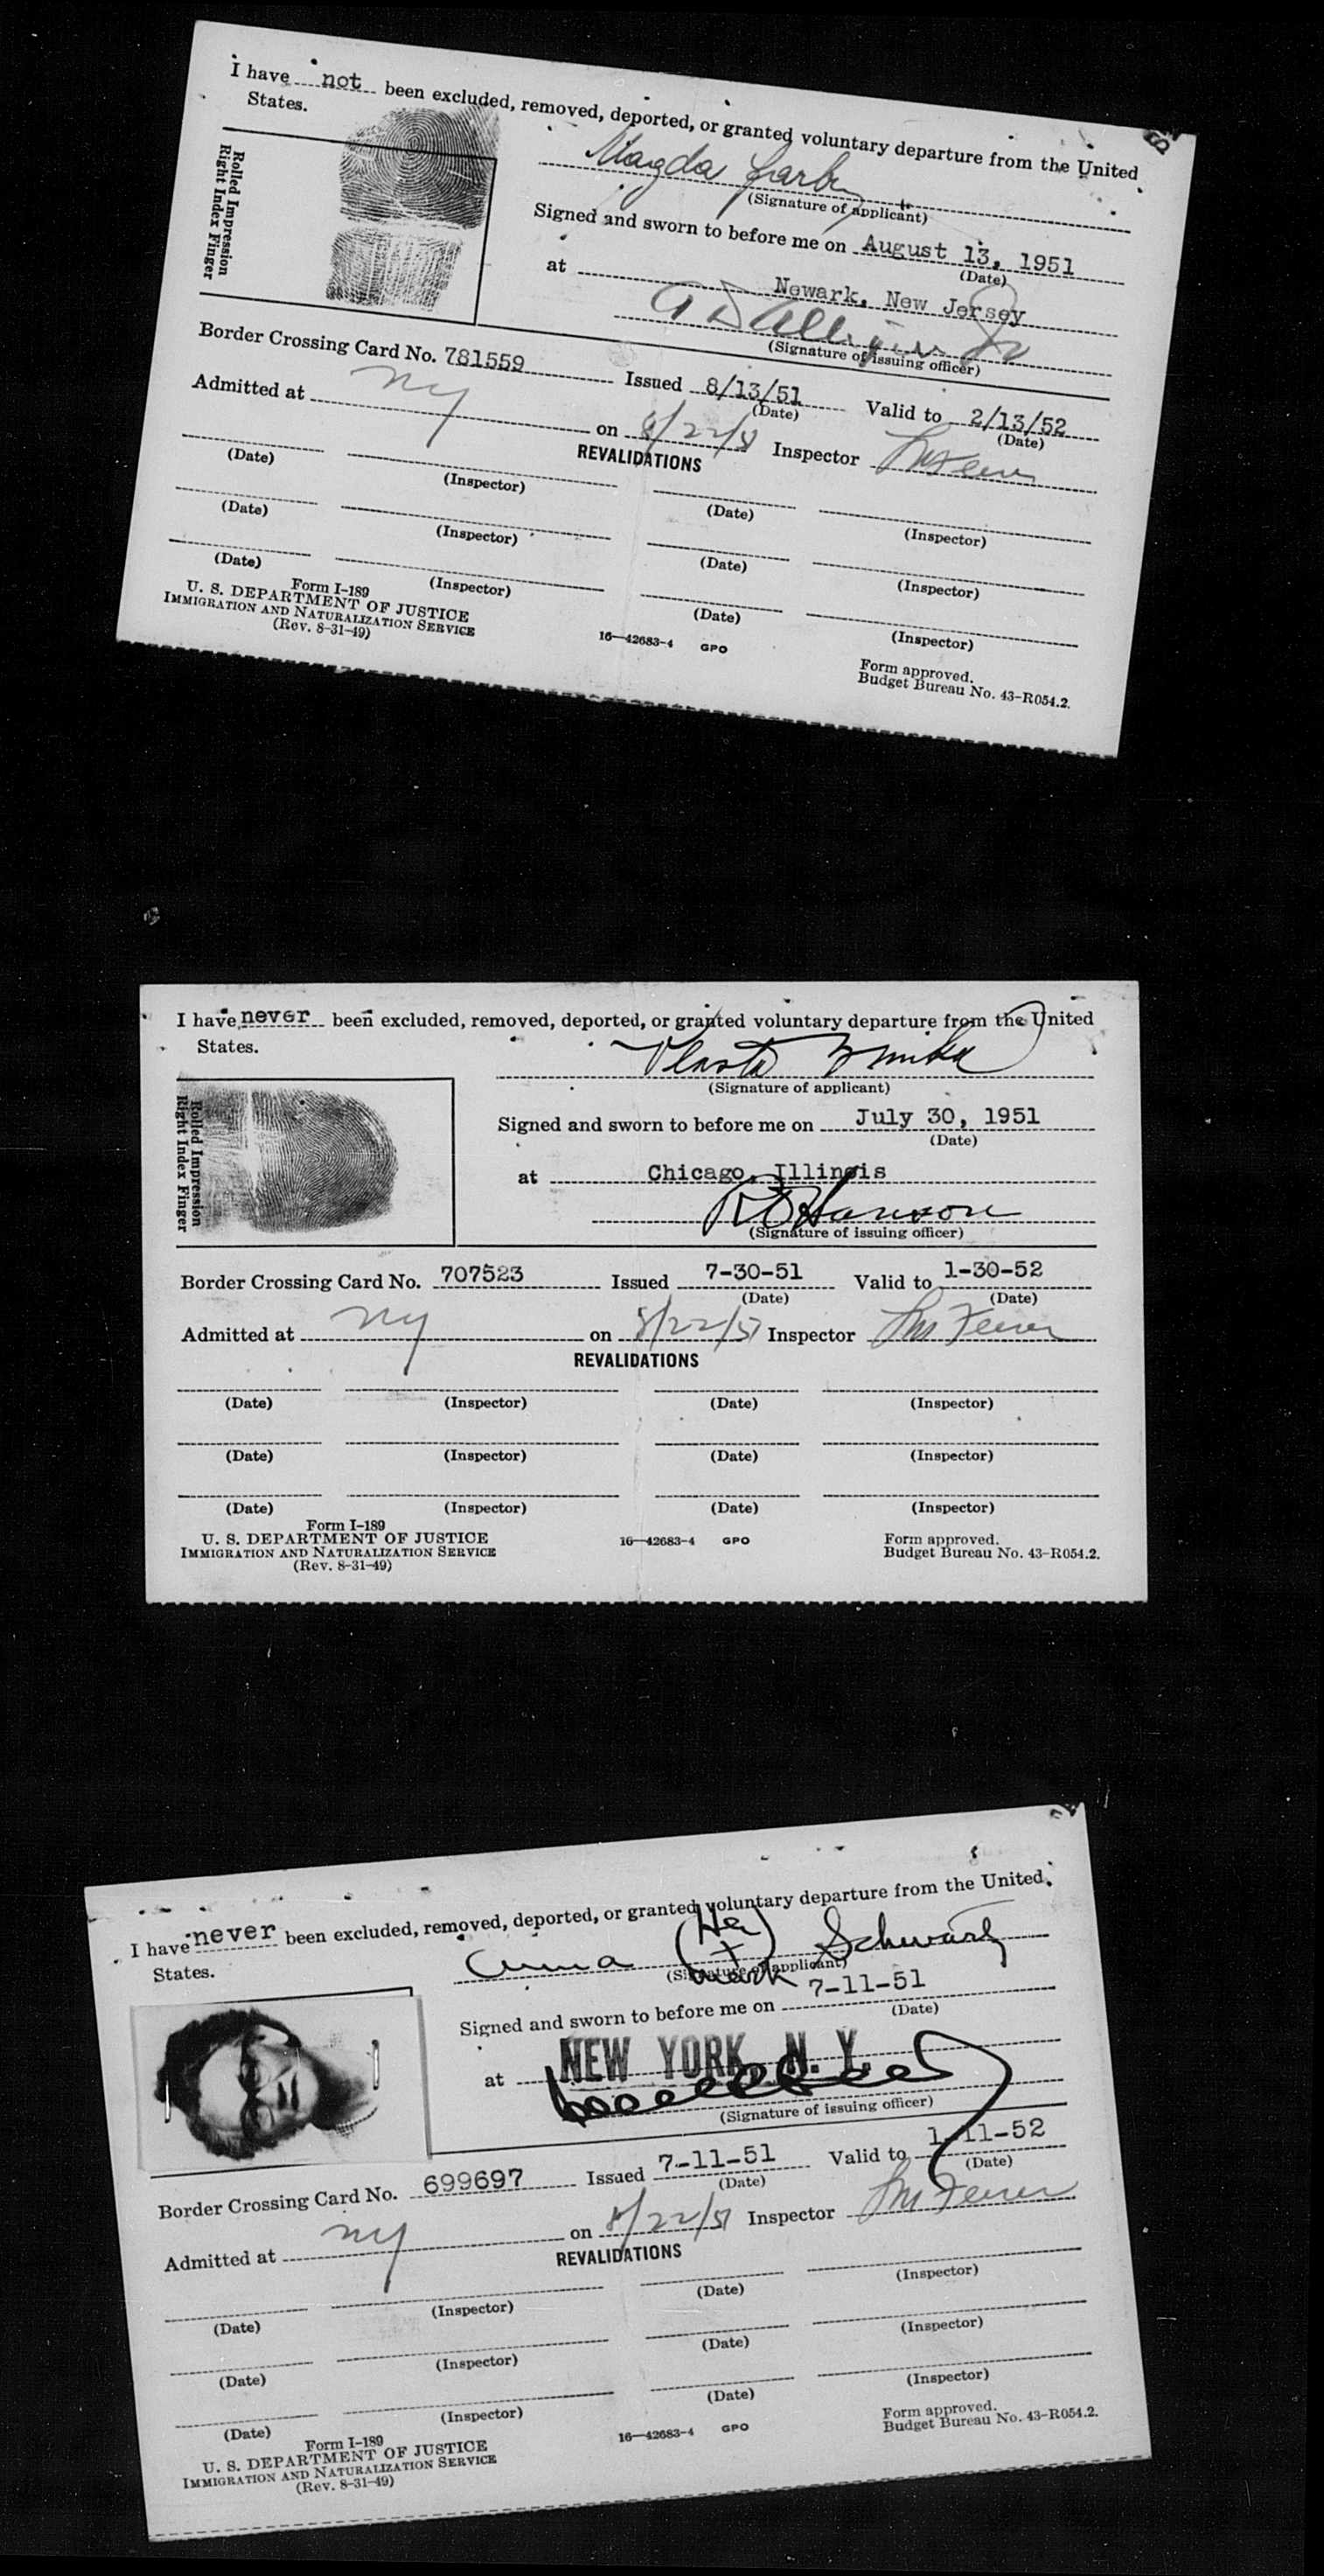 I have not been excluded, removed, deported, or granted voluntary departure from the United
States.
Rolled Impression
Right Index Finger
Magda
(Signature of applicant)
Signed and sworn to before me on August 13, 1951
(Date)
at Newark, New Jersey
(Signature of issuing officer)
Border Crossing Card No. 781559 Issued 8/13/51 Valid to 2/13/52
(Date) (Date)
Admitted at NY on 8/22/51 Inspector
REVALIDATIONS
(Date) (Inspector) (Date) (Inspector)
(Date) (Inspector) (Date) (Inspector)
(Date) (Inspector) (Date) (Inspector)
Form I-189
U. S. DEPARTMENT OF JUSTICE
IMMIGRATION AND NATURALIZATION SERVICE
(Rev. 8-31-49)
16—42683-4 GPO
Form approved.
Budget Bureau No. 43-R054.2.
I have never been excluded, removed, deported, or granted voluntary departure from the United
States.
Rolled Impression
Right Index Finger
Vlasta
(Signature of applicant)
Signed and sworn to before me on July 30, 1951
(Date)
at Chicago, Illinois
R Hanson
(Signature of issuing officer)
Border Crossing Card No. 707523 Issued 7-30-51 Valid to 1-30-52
(Date) (Date)
Admitted at NY on 8/22/51 Inspector
REVALIDATIONS
(Date) (Inspector) (Date) (Inspector)
(Date) (Inspector) (Date) (Inspector)
(Date) (Inspector) (Date) (Inspector)
Form I-189
U. S. DEPARTMENT OF JUSTICE
IMMIGRATION AND NATURALIZATION SERVICE
(Rev. 8-31-49)
16—42683-4 GPO
Form approved.
Budget Bureau No. 43-R054.2.
I have never been excluded, removed, deported, or granted voluntary departure from the United
States.
Anna (Her X mark) Schwartz
(Signature of applicant)
Signed and sworn to before me on 7-11-51
(Date)
at NEW YORK, N. Y.
(Signature of issuing officer)
Border Crossing Card No. 699697 Issued 7-11-51 Valid to 1-11-52
(Date) (Date)
Admitted at NY on 8/22/51 Inspector
REVALIDATIONS
(Date) (Inspector) (Date) (Inspector)
(Date) (Inspector) (Date) (Inspector)
(Date) (Inspector) (Date) (Inspector)
Form I-189
U. S. DEPARTMENT OF JUSTICE
IMMIGRATION AND NATURALIZATION SERVICE
(Rev. 8-31-49)
16—42683-4 GPO
Form approved.
Budget Bureau No. 43-R054.2.